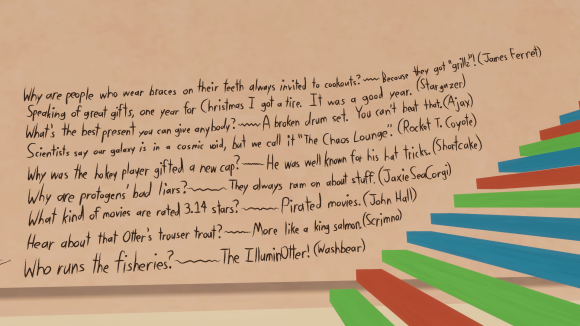 Why are people who wear braces on their teeth always invited to cookouts? ~~ Because they got "grillz"! (James Ferret)
Speaking of great gifts, one year for Christmas I got a tire. It was a good year. (Stargazer)
What's the best present you can give anybody? ~~ A broken drum set. You can't beat that. (Ajax)
Scientists say our galaxy is in a cosmic void, but we call it "The Chaos Lounge". (Rocket T. Coyote)
Why was the hokey player gifted a new cap? ~~ He was well known for his hat tricks. (Shortcake)
Why are protogens' bad liars? ~~ They always ram on about stuff. (Jaxie SeaCorgi)
What kind of movies are rated 3.14 stars? ~~ Pirated movies. (John Hall)
Hear about that Otter's trouser trout? ~~ More like a king salmon. (Scrimno)
Who runs the fisheries? ~~ The IlluminOtter! (Washbear)